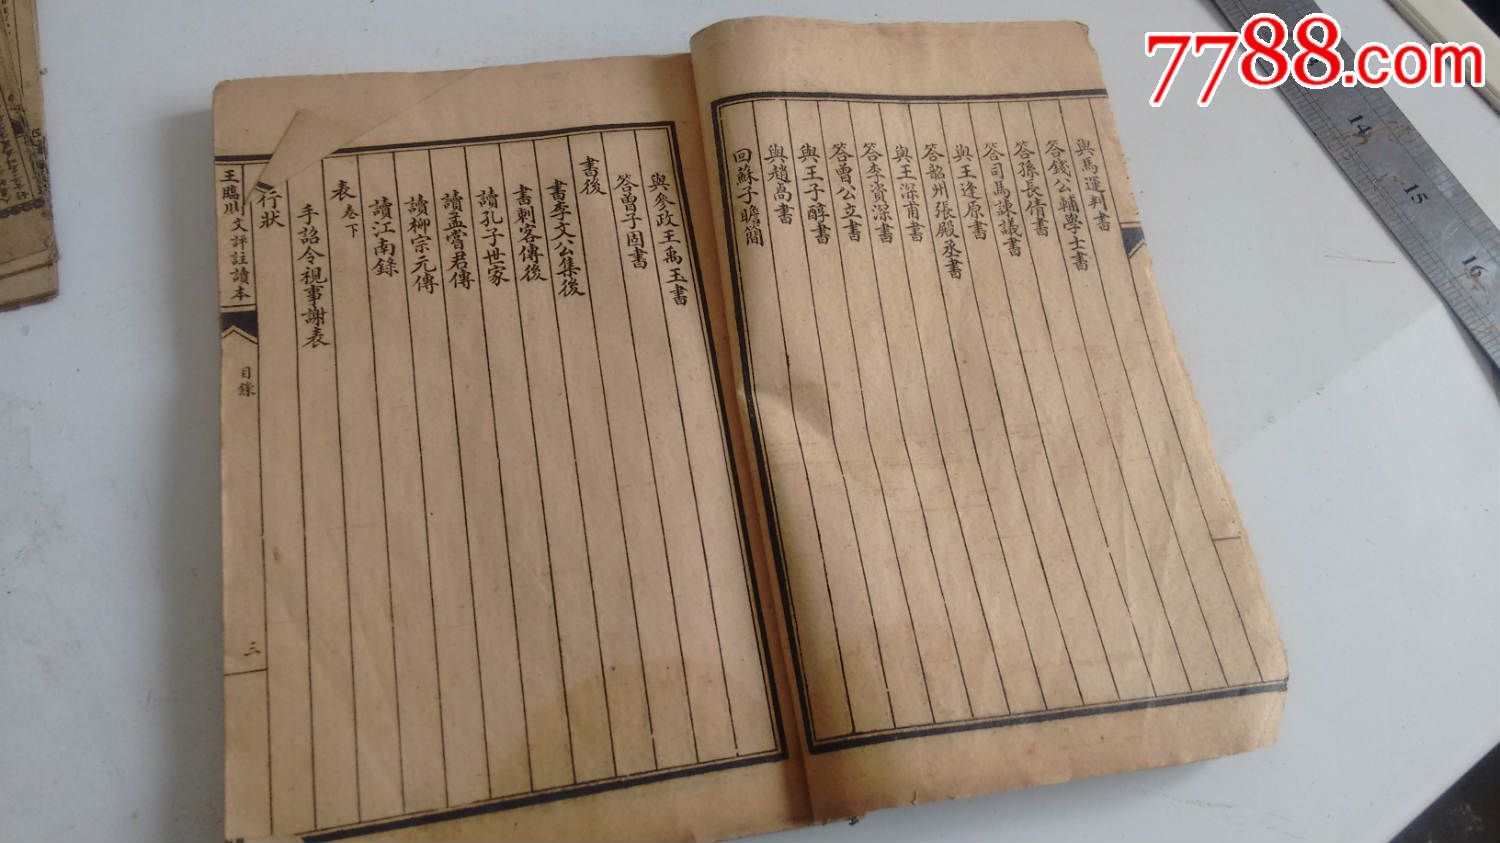 7788.com
與馬運判書
答錢公輔學士書
答孫長倩書
答司馬諫議書
與王逢原書
答韶州張殿丞書
與王深甫書
答李資深書
答曾公立書
與王子醇書
與趙卨書
回蘇子瞻簡
與參政王禹玉書
答曾子固書
書後
書李文公集後
書刺客傳後
讀孔子世家
讀孟嘗君傳
讀柳宗元傳
讀江南錄
表 卷下
手詔令視事謝表
行狀
王臨川文評註讀本
目錄
三
14
15
16